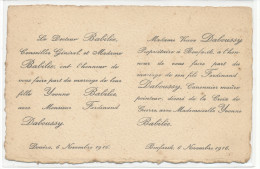 Le Docteur Babilée,
Conseiller Général, et Madame
Babilée, ont l'honneur de
vous faire part du mariage de leur
fille Yvonne Babilée,
avec Monsieur Ferdinand
Daboussy.
6 Novembre 1916.
Madame Veuve Daboussy
Propriétaire à a l'hon-
neur de vous faire part du
mariage de son fils Ferdinand
Daboussy, Canonnier mitrail-
, décoré de la Croix de
Guerre avec Mademoiselle Yvonne
Babilée.
6 Novembre 1916.